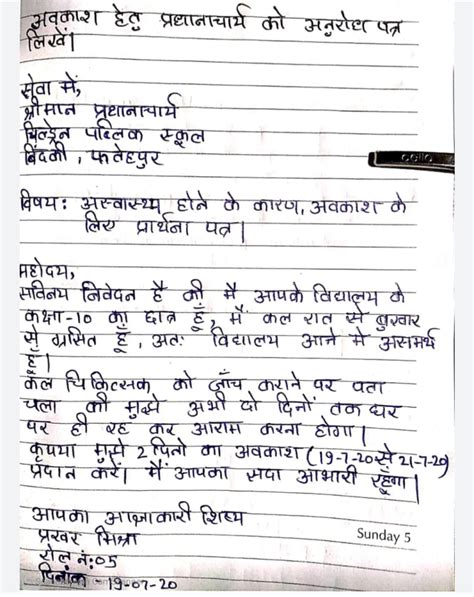 अवकाश हेतु प्रधानाचार्य को अनुरोध पत्र
लिखें।
सेवा में,
श्रीमान प्रधानाचार्य
चिल्ड्रेन पब्लिक स्कूल
बिंदकी, फतेहपुर
cello
विषय: अस्वास्थ्य होने के कारण, अवकाश के
लिए प्रार्थना पत्र।
महोदय,
सविनय निवेदन है की मै आपके विद्यालय के
कक्षा-10 का छात्र हूँ, मैं कल रात से बुखार
से ग्रसित हूँ, अतः विद्यालय आने मे असमर्थ
हूँ।
कल चिकित्सक को जाँच कराने पर पता
चला की मुझे अभी दो दिनों, तक घर
पर ही रह कर आराम करना होगा।
कृपया मुझे 2 दिनो का अवकाश (19-7-20 से 21-7-20)
प्रदान करें। मैं आपका सदा आभारी रहूँगा।
आपका आज्ञाकारी शिष्य
प्रखर मिश्रा
Sunday 5
रोल नं:05
दिनांक - 19-07-20